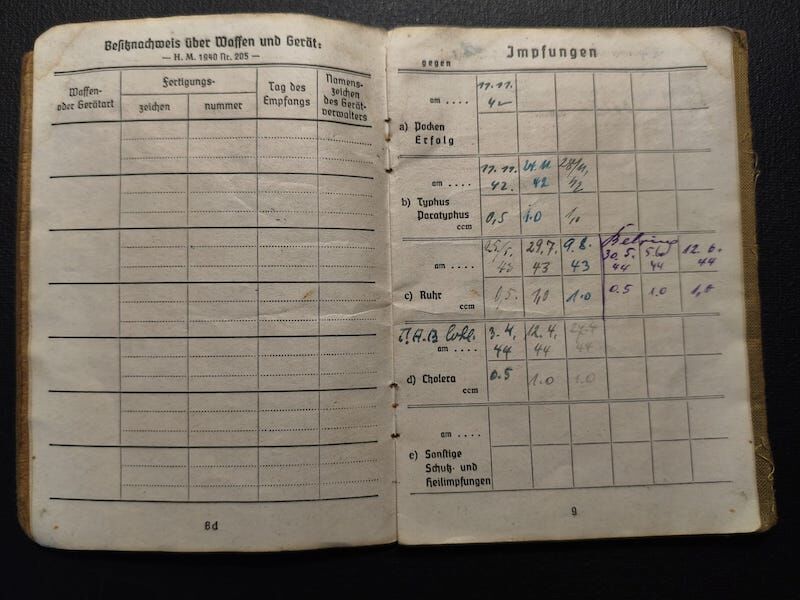 Besitznachweis über Waffen und Gerät:
— H. M. 1940 Nr. 205 —
Waffen-
oder Gerätart
Fertigungs-
zeichen
nummer
Tag des
Empfangs
Namens-
zeichen
des Gerät-
verwalters
8d
Impfungen
gegen
11. 11.
am .... 42
a) Pocken
Erfolg
11. 11. 24. 11. 28/11.
am .... 42. 42 42
b) Typhus
Paratyphus
ccm 0,5 1.0 1,0
29.7. 9.8. 30.5. 12.6.
am .... 43 43 43 44 44 44
c) Ruhr
ccm 0,5. 1,0 1.0 0.5 1.0 1,0
T.A.B. 3.4. 12.4.
am .... 44 44 44
d) Cholera
ccm 0.5 1.0 1.0
am ....
e) Sonstige
Schutz- und
Heilimpfungen
9